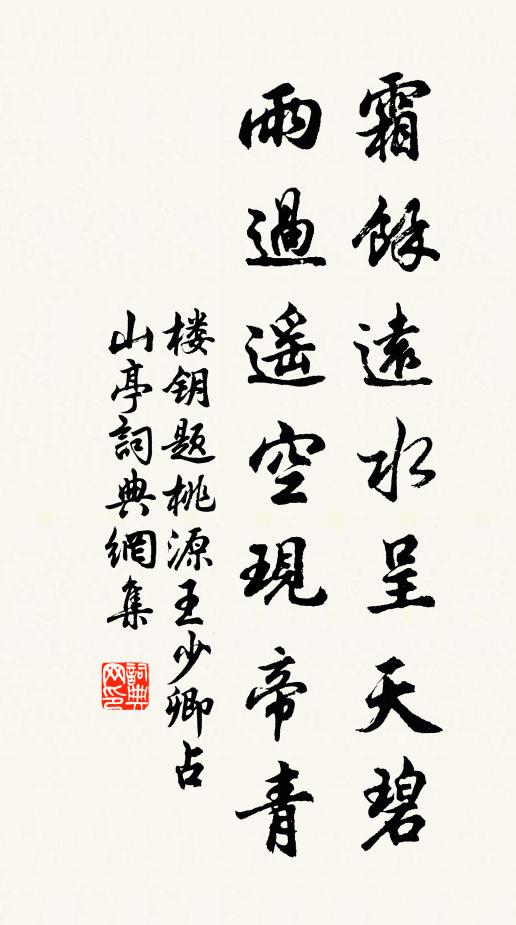 霜餘遠水呈天碧
雨過遥空現帝青
楼钥题桃源王少卿占
山亭詞典網集
詞典網印